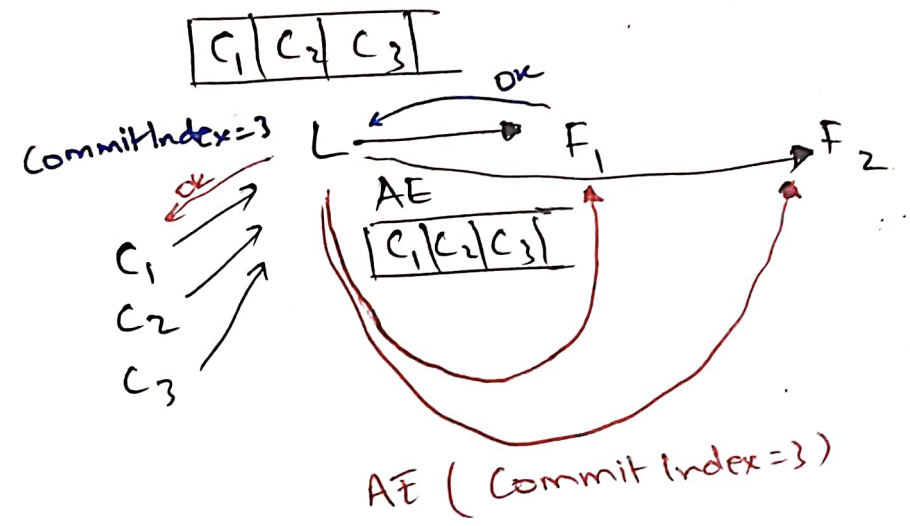 C1 C2 C3
OK
CommitIndex=3 L F1 F2
OK
AE
C1 C2 C3
C1
C2
C3
AE (Commit Index=3)